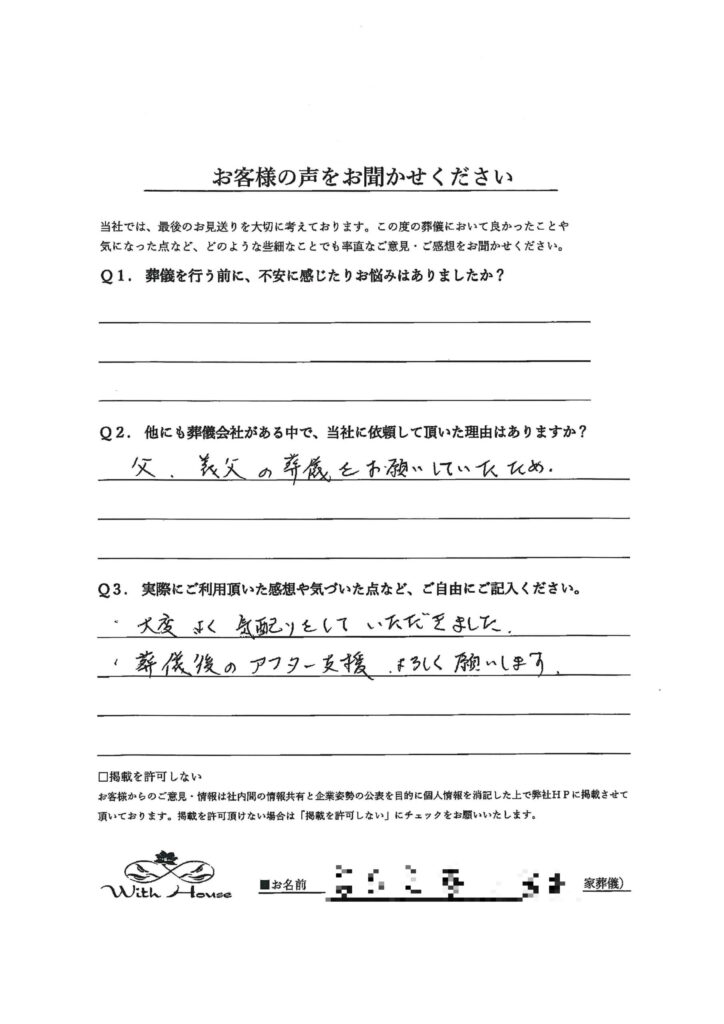 お客様の声をお聞かせください
当社では、最後のお見送りを大切に考えております。この度の葬儀において良かったことや
気になった点など、どのような些細なことでも率直なご意見・ご感想をお聞かせください。
Q1. 葬儀を行う前に、不安に感じたりお悩みはありましたか?
Q2. 他にも葬儀会社がある中で、当社に依頼して頂いた理由はありますか?
父、義父の葬儀をお願いしていたため.
Q3. 実際にご利用頂いた感想や気づいた点など、ご自由にご記入ください。
・大変よく気配りをしていただきました.
・葬儀後のアフター支援.よろしく願いします.
□掲載を許可しない
お客様からのご意見・情報は社内間の情報共有と企業姿勢の公表を目的に個人情報を消記した上で弊社HPに掲載させて
頂いております。掲載を許可頂けない場合は「掲載を許可しない」にチェックをお願いいたします。
With House
■お名前 家葬儀)